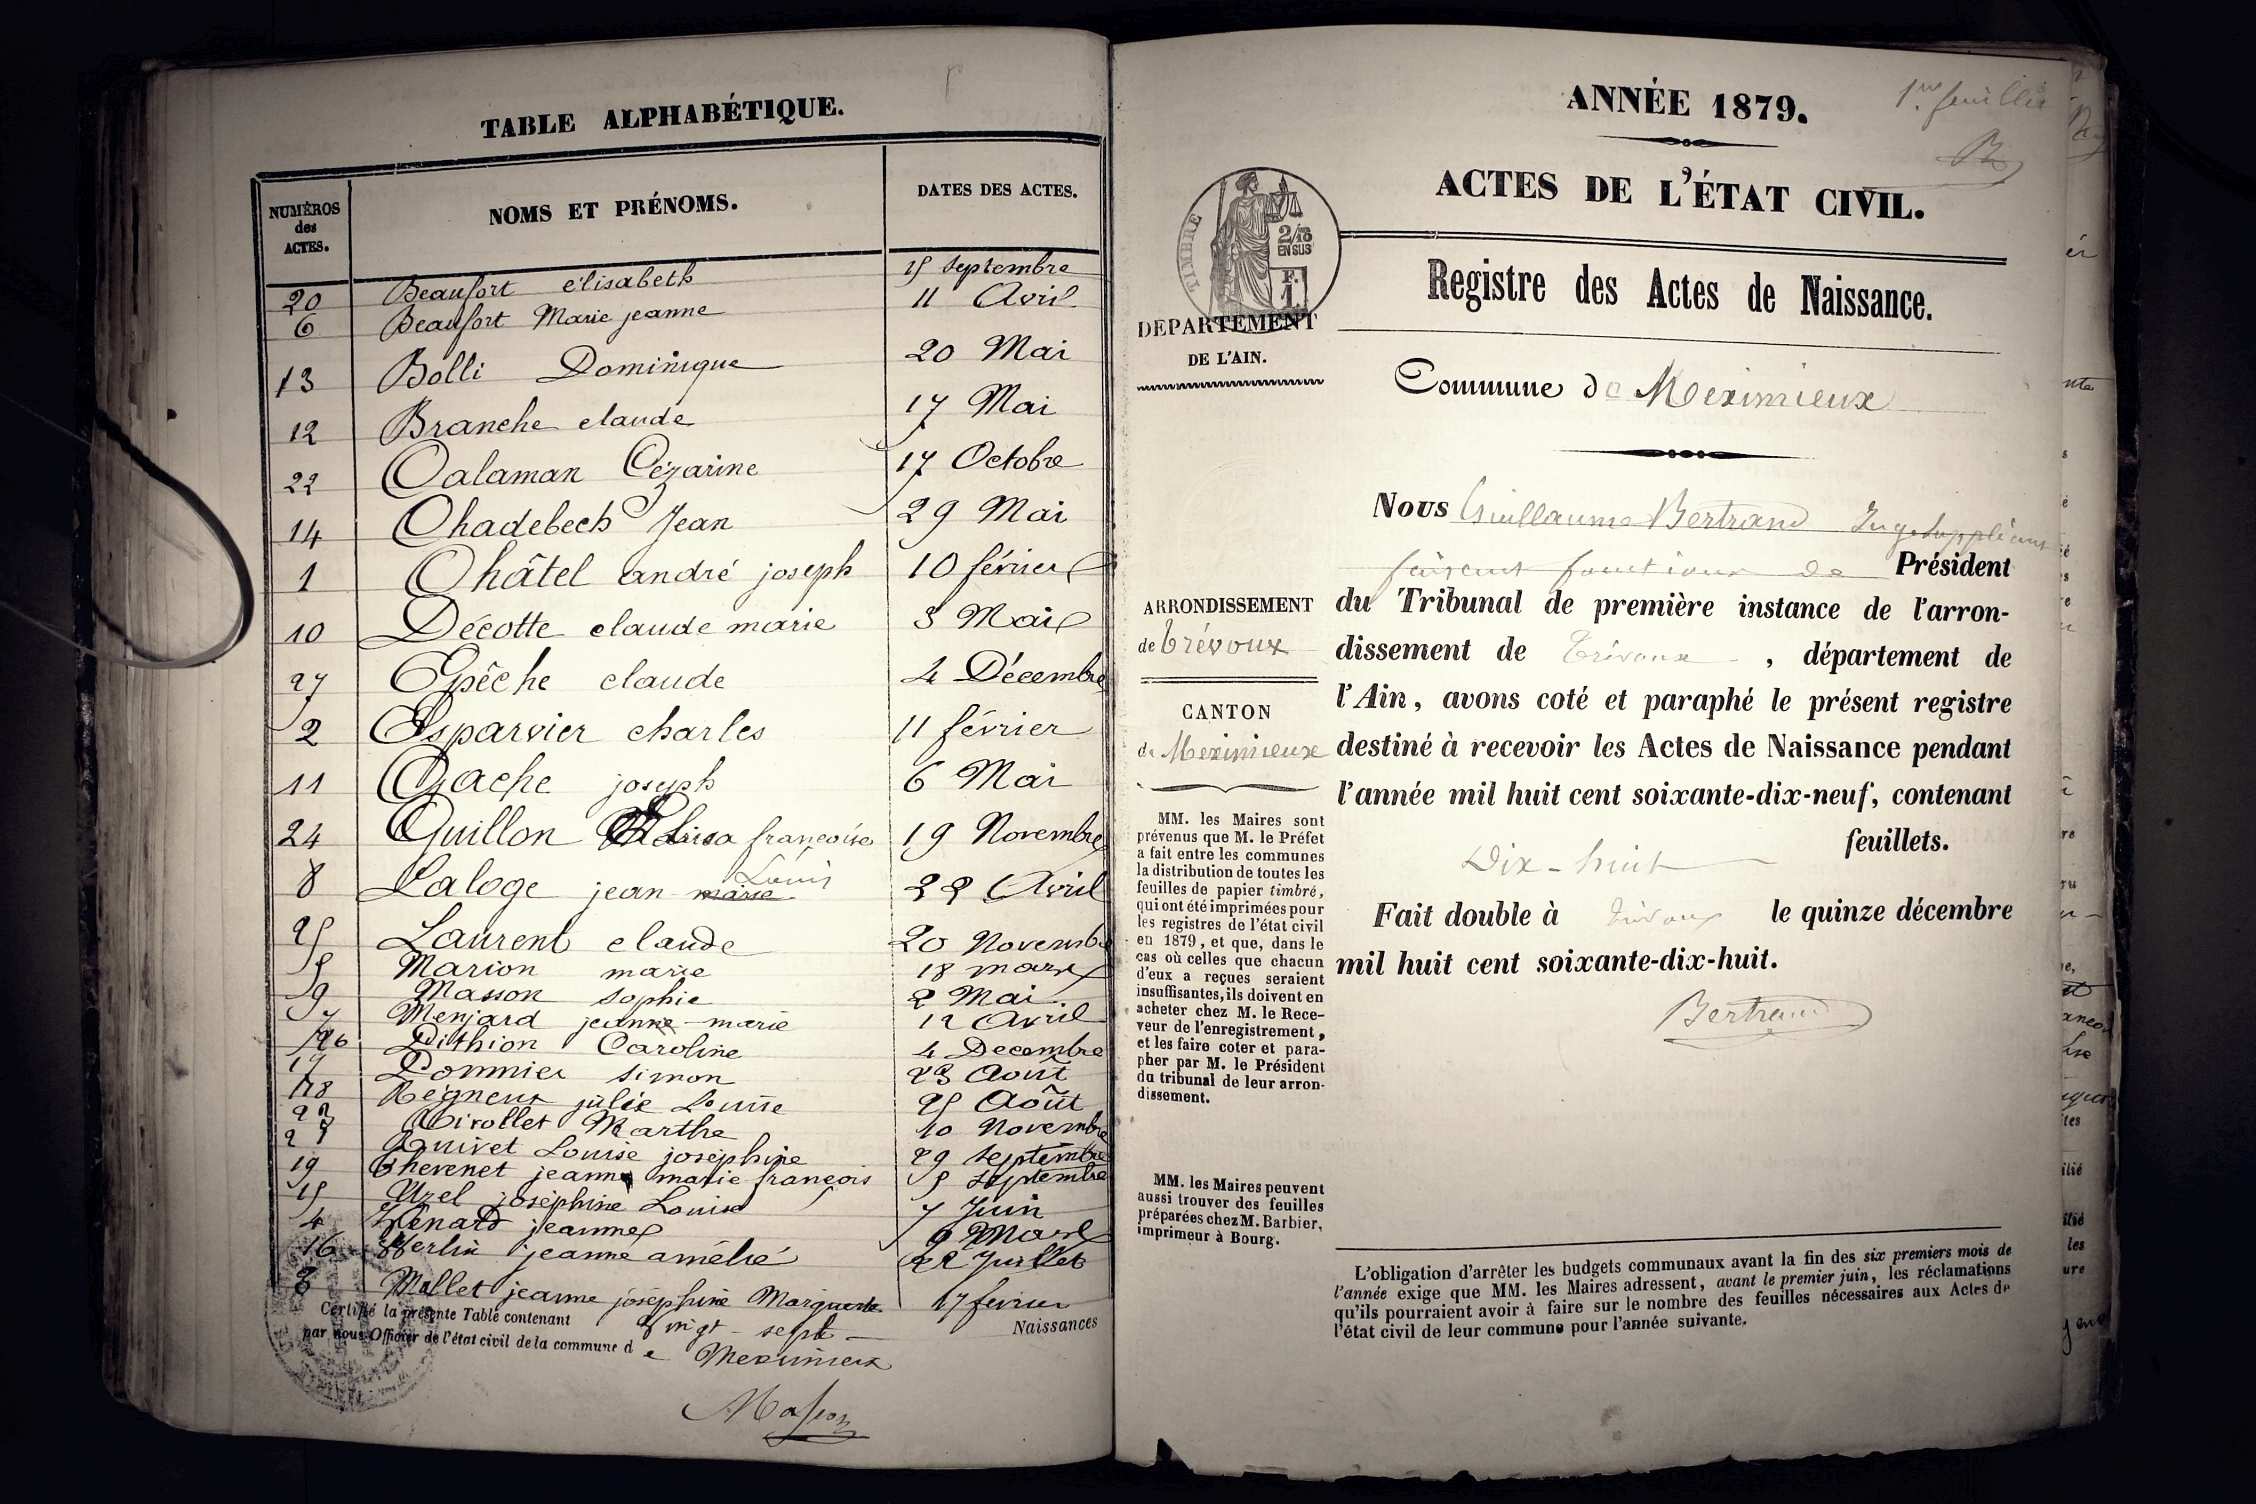 TABLE ALPHABÉTIQUE.
NUMÉROS des ACTES.
NOMS ET PRÉNOMS.
DATES DES ACTES.
20 Beaufort élisabeth 15 septembre
6 Beaufort Marie jeanne 11 Avril
13 Bolli Dominique 20 Mai
12 Branche claude 17 Mai
22 Calaman Cézarine 17 Octobre
14 Chadebech Jean 29 Mai
1 Châtel andré joseph 10 février
10 Décotte claude marie 3 Mai
27 Epêche claude 4 Décembre
2 Esparvier charles 11 février
11 Gache joseph 6 Mai
24 Guillon Elisa françoise 19 Novembre
Louis
8 Laloge jean marie 22 Avril
25 Laurent claude 20 Novembre
5 Marion marie 18 mars
9 Masson sophie 2 Mai
7 Menjard jeanne-marie 12 Avril
26 Pithion Caroline 4 Decembre
17 Pommier simon 23 Aout
18 Régneux julie Louise 25 Août
23 Rivollet Marthe 10 Novembre
21 Quivet Louise joséphine 29 septembre
19 Thevenet jeanne marie françois 5 septembre
15 Uzel joséphine Louise 7 Juin
4 Venard jeanne 9 Mars
16 Verlin jeanne amélie 22 Juillet
3 Mallet jeanne joséphine Marguerite 17 fevrier
Certifié la présente Table contenant vingt-sept Naissances
par nous Officier de l'état civil de la commune de Meximieux
Masson
1er feuillet
ANNÉE 1879.
ACTES DE L'ÉTAT CIVIL.
TIMBRE
2/10
EN SUS
F.
1.
Registre des Actes de Naissance.
DÉPARTEMENT
DE L'AIN.
Commune de Meximieux
Nous Guillaume Bertrand Juge suppléant
faisant fonctions de Président
du Tribunal de première instance de l'arron-
dissement de Trévoux, département de
l'Ain, avons coté et paraphé le présent registre
destiné à recevoir les Actes de Naissance pendant
l'année mil huit cent soixante-dix-neuf, contenant
Dix-huit feuillets.
Fait double à Trévoux le quinze décembre
mil huit cent soixante-dix-huit.
Bertrand
ARRONDISSEMENT
de Trévoux
CANTON
de Meximieux
MM. les Maires sont
prévenus que M. le Préfet
a fait entre les communes
la distribution de toutes les
feuilles de papier timbré,
qui ont été imprimées pour
les registres de l'état civil
en 1879, et que, dans le
cas où celles que chacun
d'eux a reçues seraient
insuffisantes, ils doivent en
acheter chez M. le Rece-
veur de l'enregistrement,
et les faire coter et para-
pher par M. le Président
du tribunal de leur arron-
dissement.
MM. les Maires peuvent
aussi trouver des feuilles
préparées chez M. Barbier,
imprimeur à Bourg.
L'obligation d'arrêter les budgets communaux avant la fin des six premiers mois de
l'année exige que MM. les Maires adressent, avant le premier juin, les réclamations
qu'ils pourraient avoir à faire sur le nombre des feuilles nécessaires aux Actes de
l'état civil de leur commune pour l'année suivante.